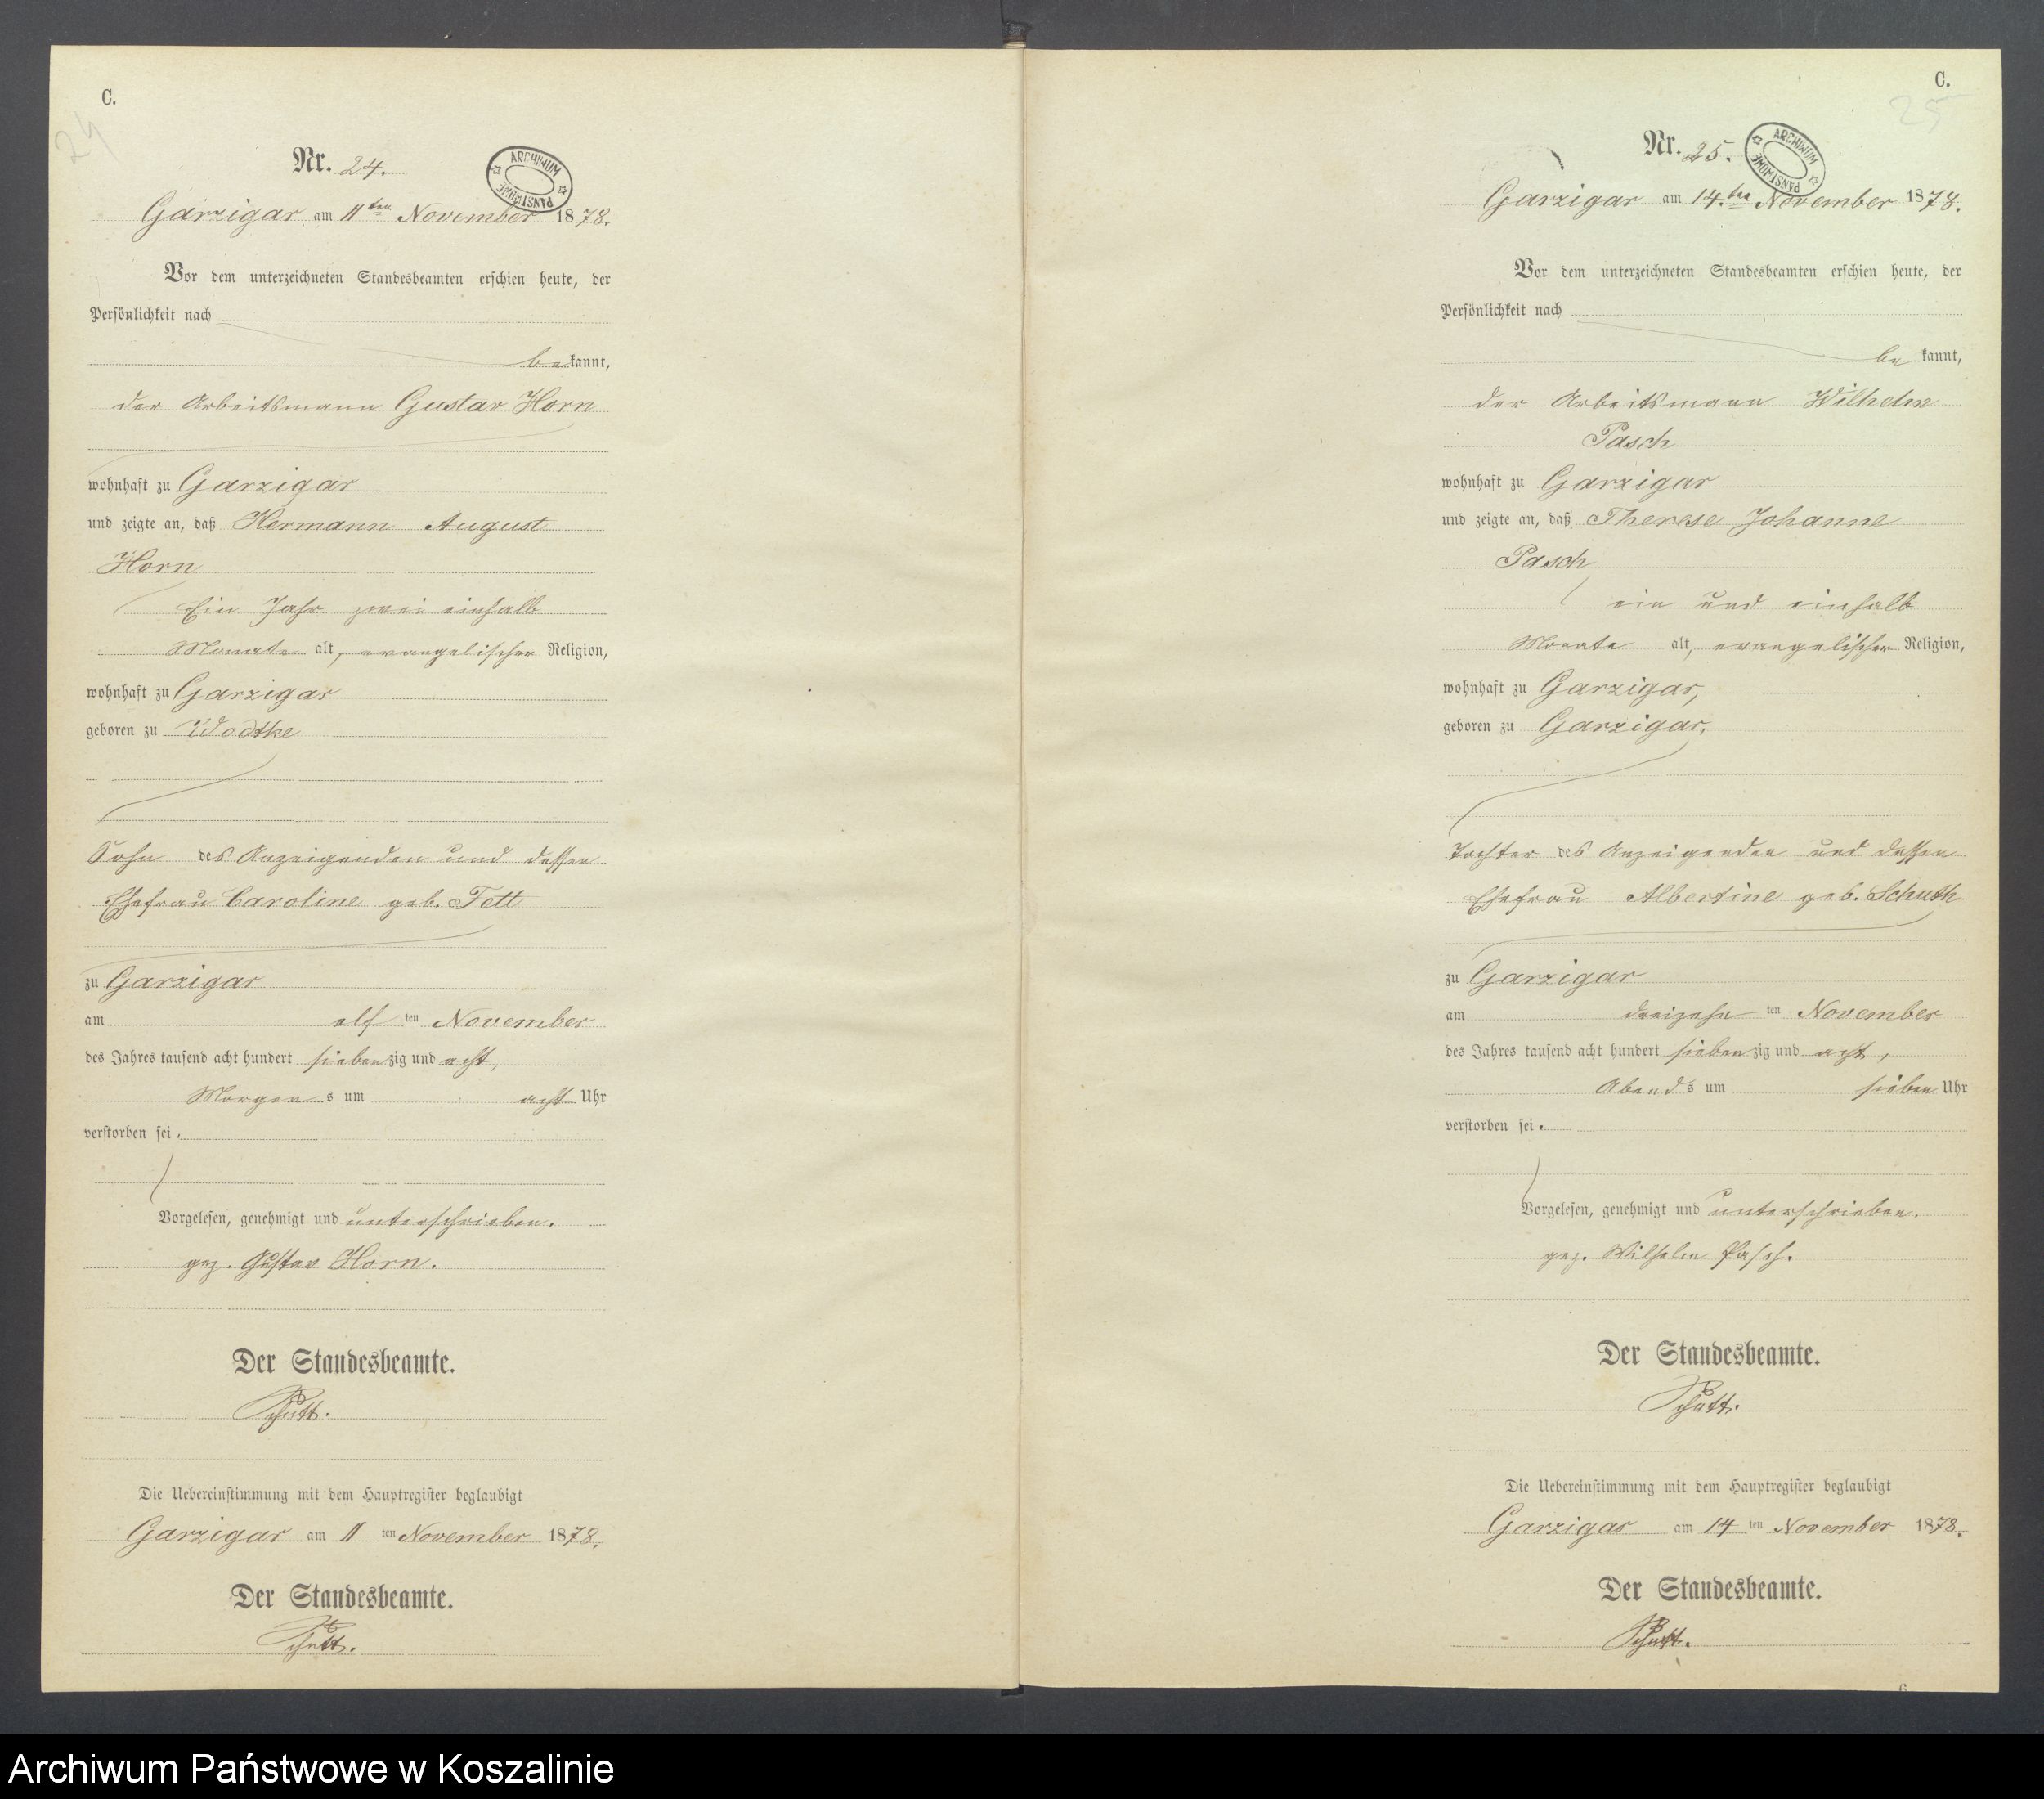 C.
24
Nr. 24.
ARCHIWUM PAŃSTWOWE
Garzigar am 11ten November 1878.
Vor dem unterzeichneten Standesbeamten erschien heute, der
Persönlichkeit nach
bekannt,
der Arbeitsmann Gustav Horn
wohnhaft zu Garzigar
und zeigte an, daß Hermann August
Horn
Ein Jahr zwei einhalb
Monate alt, evangelischer Religion,
wohnhaft zu Garzigar
geboren zu Wodtke
Sohn des Anzeigenden und dessen
Ehefrau Caroline geb. Fett
zu Garzigar
am elf ten November
des Jahres tausend acht hundert siebenzig und acht,
Morgens um acht Uhr
verstorben sei.
Vorgelesen, genehmigt und unterschrieben.
gez. Gustav Horn.
Der Standesbeamte.
Schütt.
Die Uebereinstimmung mit dem Hauptregister beglaubigt
Garzigar am 11 ten November 1878.
Der Standesbeamte.
Schütt.
C.
25
Nr. 25.
ARCHIWUM PAŃSTWOWE
Garzigar am 14.ten November 1878.
Vor dem unterzeichneten Standesbeamten erschien heute, der
Persönlichkeit nach
be kannt,
der Arbeitsmann Wilhelm
Pasch
wohnhaft zu Garzigar
und zeigte an, daß Therese Johanne
Pasch
ein und einhalb
Monate alt, evangelischer Religion,
wohnhaft zu Garzigar,
geboren zu Garzigar,
Tochter des Anzeigenden und dessen
Ehefrau Albertine geb. Schuth
zu Garzigar
am dreizehn ten November
des Jahres tausend acht hundert siebenzig und acht,
Abends um sieben Uhr
verstorben sei.
Vorgelesen, genehmigt und unterschrieben.
gez. Wilhelm Pasch.
Der Standesbeamte.
Schütt.
Die Uebereinstimmung mit dem Hauptregister beglaubigt
Garzigar am 14 ten November 1878.
Der Standesbeamte.
Schütt.
6
Archiwum Państwowe w Koszalinie